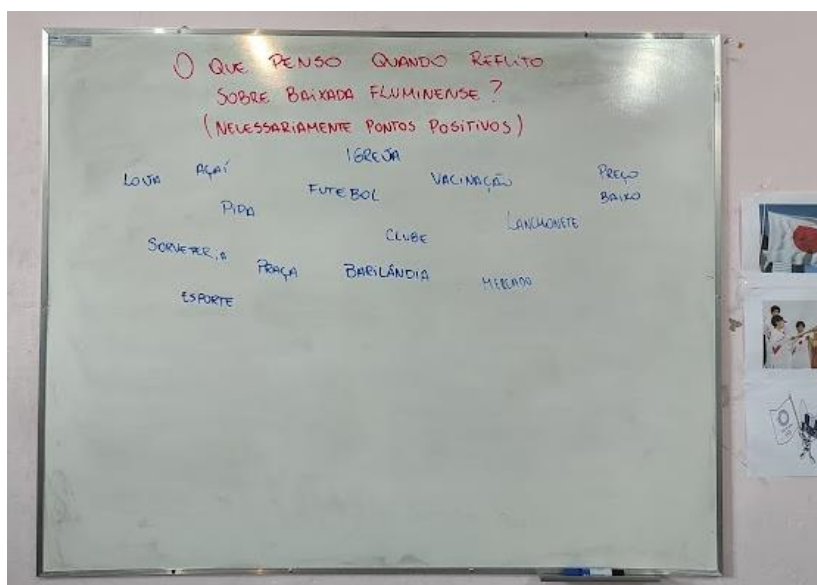 O QUE PENSO QUANDO REFLITO
SOBRE BAIXADA FLUMINENSE?
(NECESSARIAMENTE PONTOS POSITIVOS)
IGREJA
LOJA AÇAÍ FUTEBOL VACINAÇÃO PREÇO
BAIXO
PIPA CLUBE LANCHONETE
SORVETERIA PRAÇA BARILÂNDIA MERCADO
ESPORTE